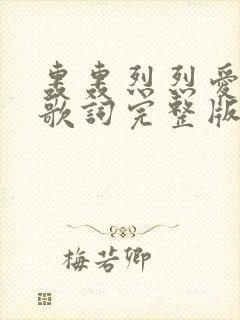 轰轰烈烈爱
歌詞完整版
梅若卿